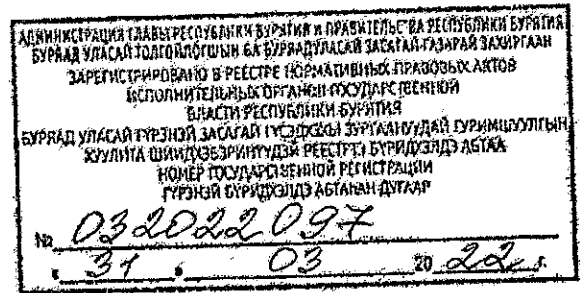 АДМИНИСТРАЦИЯ ГЛАВЫ РЕСПУБЛИКИ БУРЯТИЯ И ПРАВИТЕЛЬСТВА РЕСПУБЛИКИ БУРЯТИЯ
БУРЯАД УЛАСАЙ ТОЛГОЙЛОГШЫН БА БУРЯАД УЛАСАЙ ЗАСАГАЙ ГАЗАРАЙ ЗАХИРГААН
ЗАРЕГИСТРИРОВАНО В РЕЕСТРЕ НОРМАТИВНЫХ ПРАВОВЫХ АКТОВ
ИСПОЛНИТЕЛЬНЫХ ОРГАНОВ ГОСУДАРСТВЕННОЙ
ВЛАСТИ РЕСПУБЛИКИ БУРЯТИЯ
БУРЯАД УЛАСАЙ ГҮРЭНЭЙ ЗАСАГАЙ ГҮЙСЭДХЭХЫ ЗУРГААНУУДАЙ ГУРИМШУУЛГЫН
ХУУЛИТА ШИИДХЭБЭРИНҮҮДЭЙ РЕЕСТРТЭ БҮРИДХЭЛДЭ АБТАА
НОМЕР ГОСУДАРСТВЕННОЙ РЕГИСТРАЦИИ
ГҮРЭНЭЙ БҮРИДХЭЛДЭ АБТАҺАН ДУГААР
№ 032022097
« 31 » 03 20 22 г.